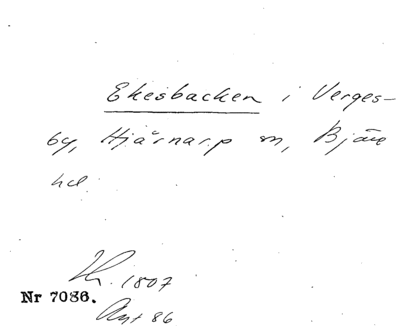 Ekesbacken i Verges-
by, Hjärnarp sn, Bjäre
hd.
1807
Nr 7086.
Akt 86